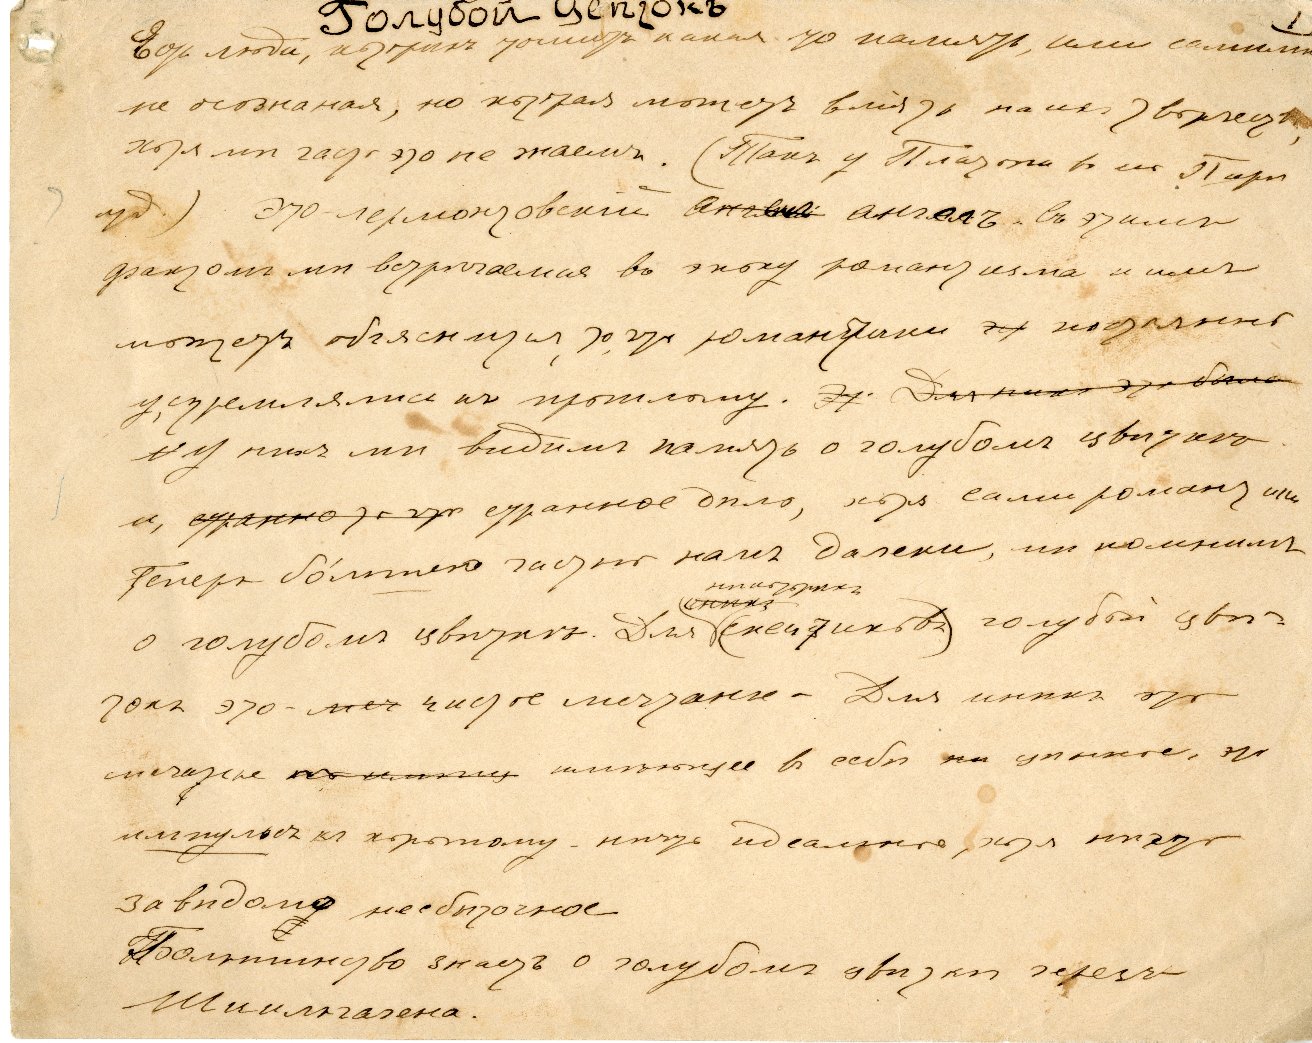 Голубой цвѣтокъ
1
Есть люди, которыхъ томитъ какая-то память, ими самими
не осознаная, но которая можетъ влiять на ихъ творчество,
хотя мы часто это не знаемъ. (Такъ у Платона в его Пирѣ
) это-лермонтовскiй ангелъ ангелъ. Съ этимъ
фактомъ мы встрѣчаемся въ эпоху романтизма и имъ
можетъ объяснится, то, что романтики эт постоянно
устремлялись къ прошлому. Эт. Для нихъ это было
и У нихъ мы видимъ память о голубомъ цвѣткѣ
и, странно то что странное дѣло, хотя сами романтики
теперь бо́льшею частью намъ далеки, мы помнимъ
некоторыхъ
о голубомъ цвѣткѣ. Для (скептиковъ) голубой цвѣ-
токъ это - меч чистое мечтанье - Для иныхъ это
мечтанье имѣющее в себѣ цѣнное, это
импульсъ къ хорошему - нѣчто идеальное, хотя нѣчто
завѣдомо несбыточное
Большинство знаетъ о голубомъ цвѣткѣ черезъ